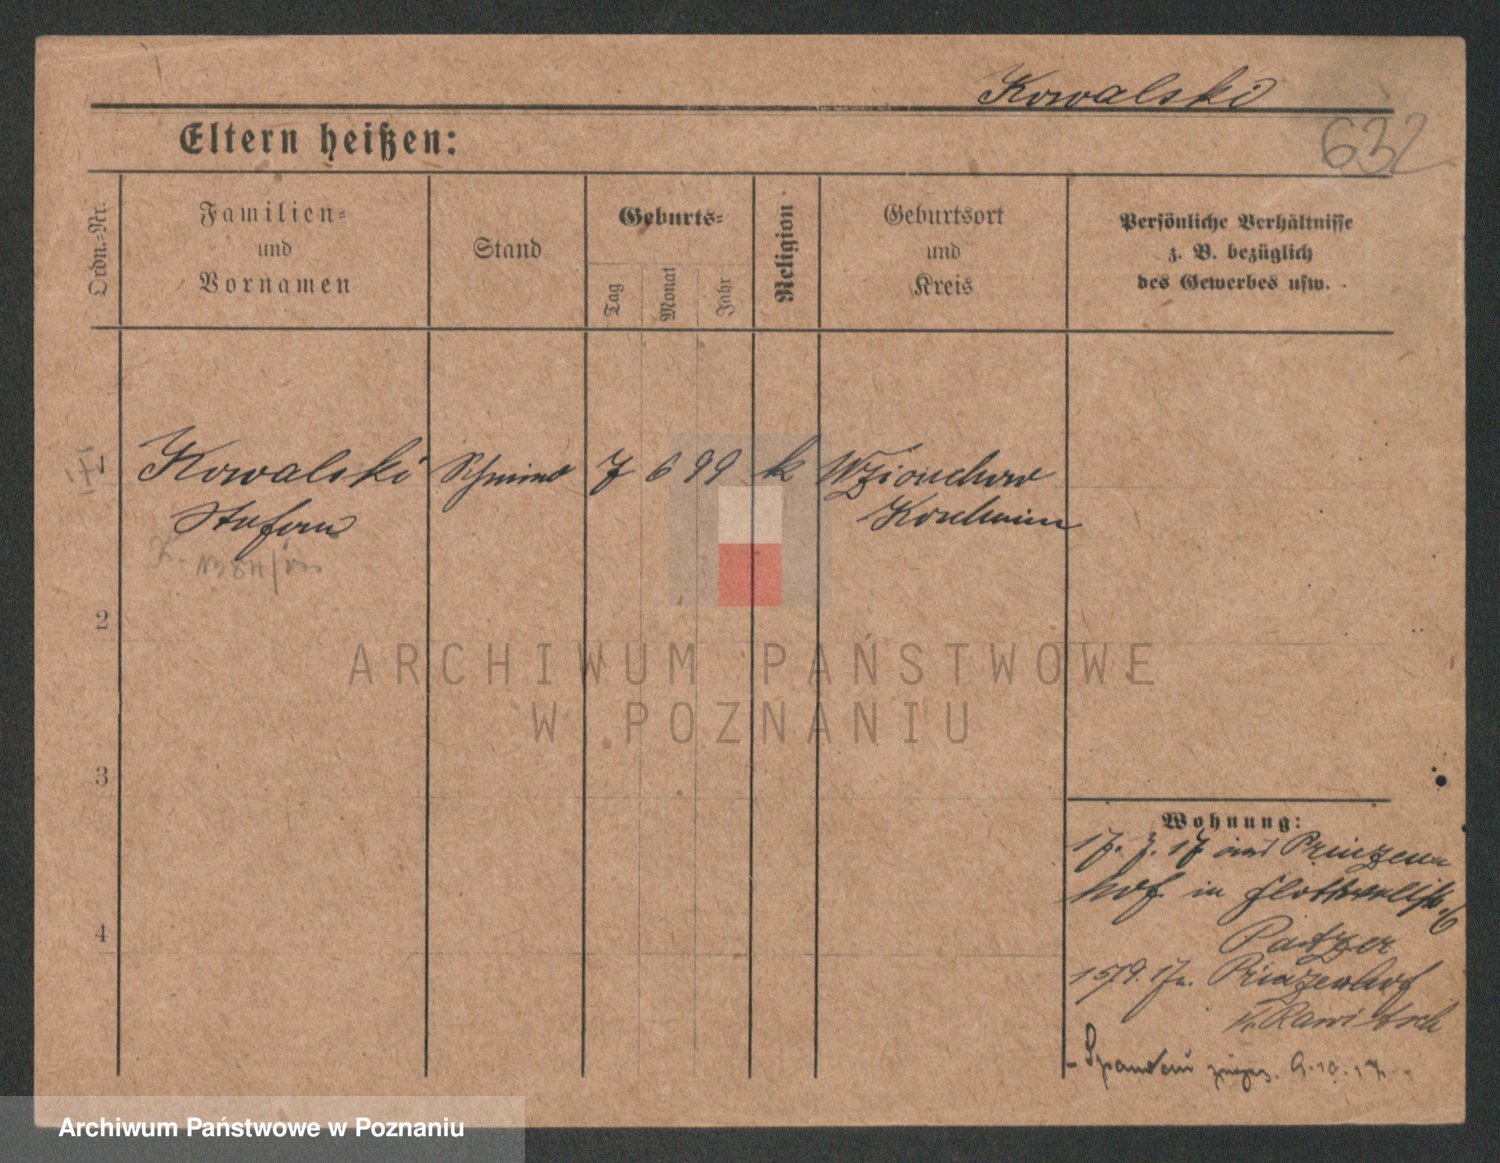 Kowalski
632
Eltern heißen:
Ordn.-Nr.
Familien-
und
Vornamen
Stand
Geburts-
Tag
Monat
Jahr
Religion
Geburtsort
und
Kreis
Persönliche Verhältnisse
z. B. bezüglich
des Gewerbes usw.
1
Kowalski
Schmied
7
6
99
k
Stefan
Koschmin
2
3
4
ARCHIWUM PAŃSTWOWE
W POZNANIU
Wohnung:
17. 7. 17 aus Prinzen
hof in
Patzer
15/9. 17 n. Prinzenhof
K. Rawitsch
Spandau 9.10.17
Archiwum Państwowe w Poznaniu